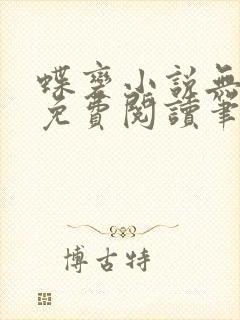 蝶變小說無
免費閱讀筆
博古特